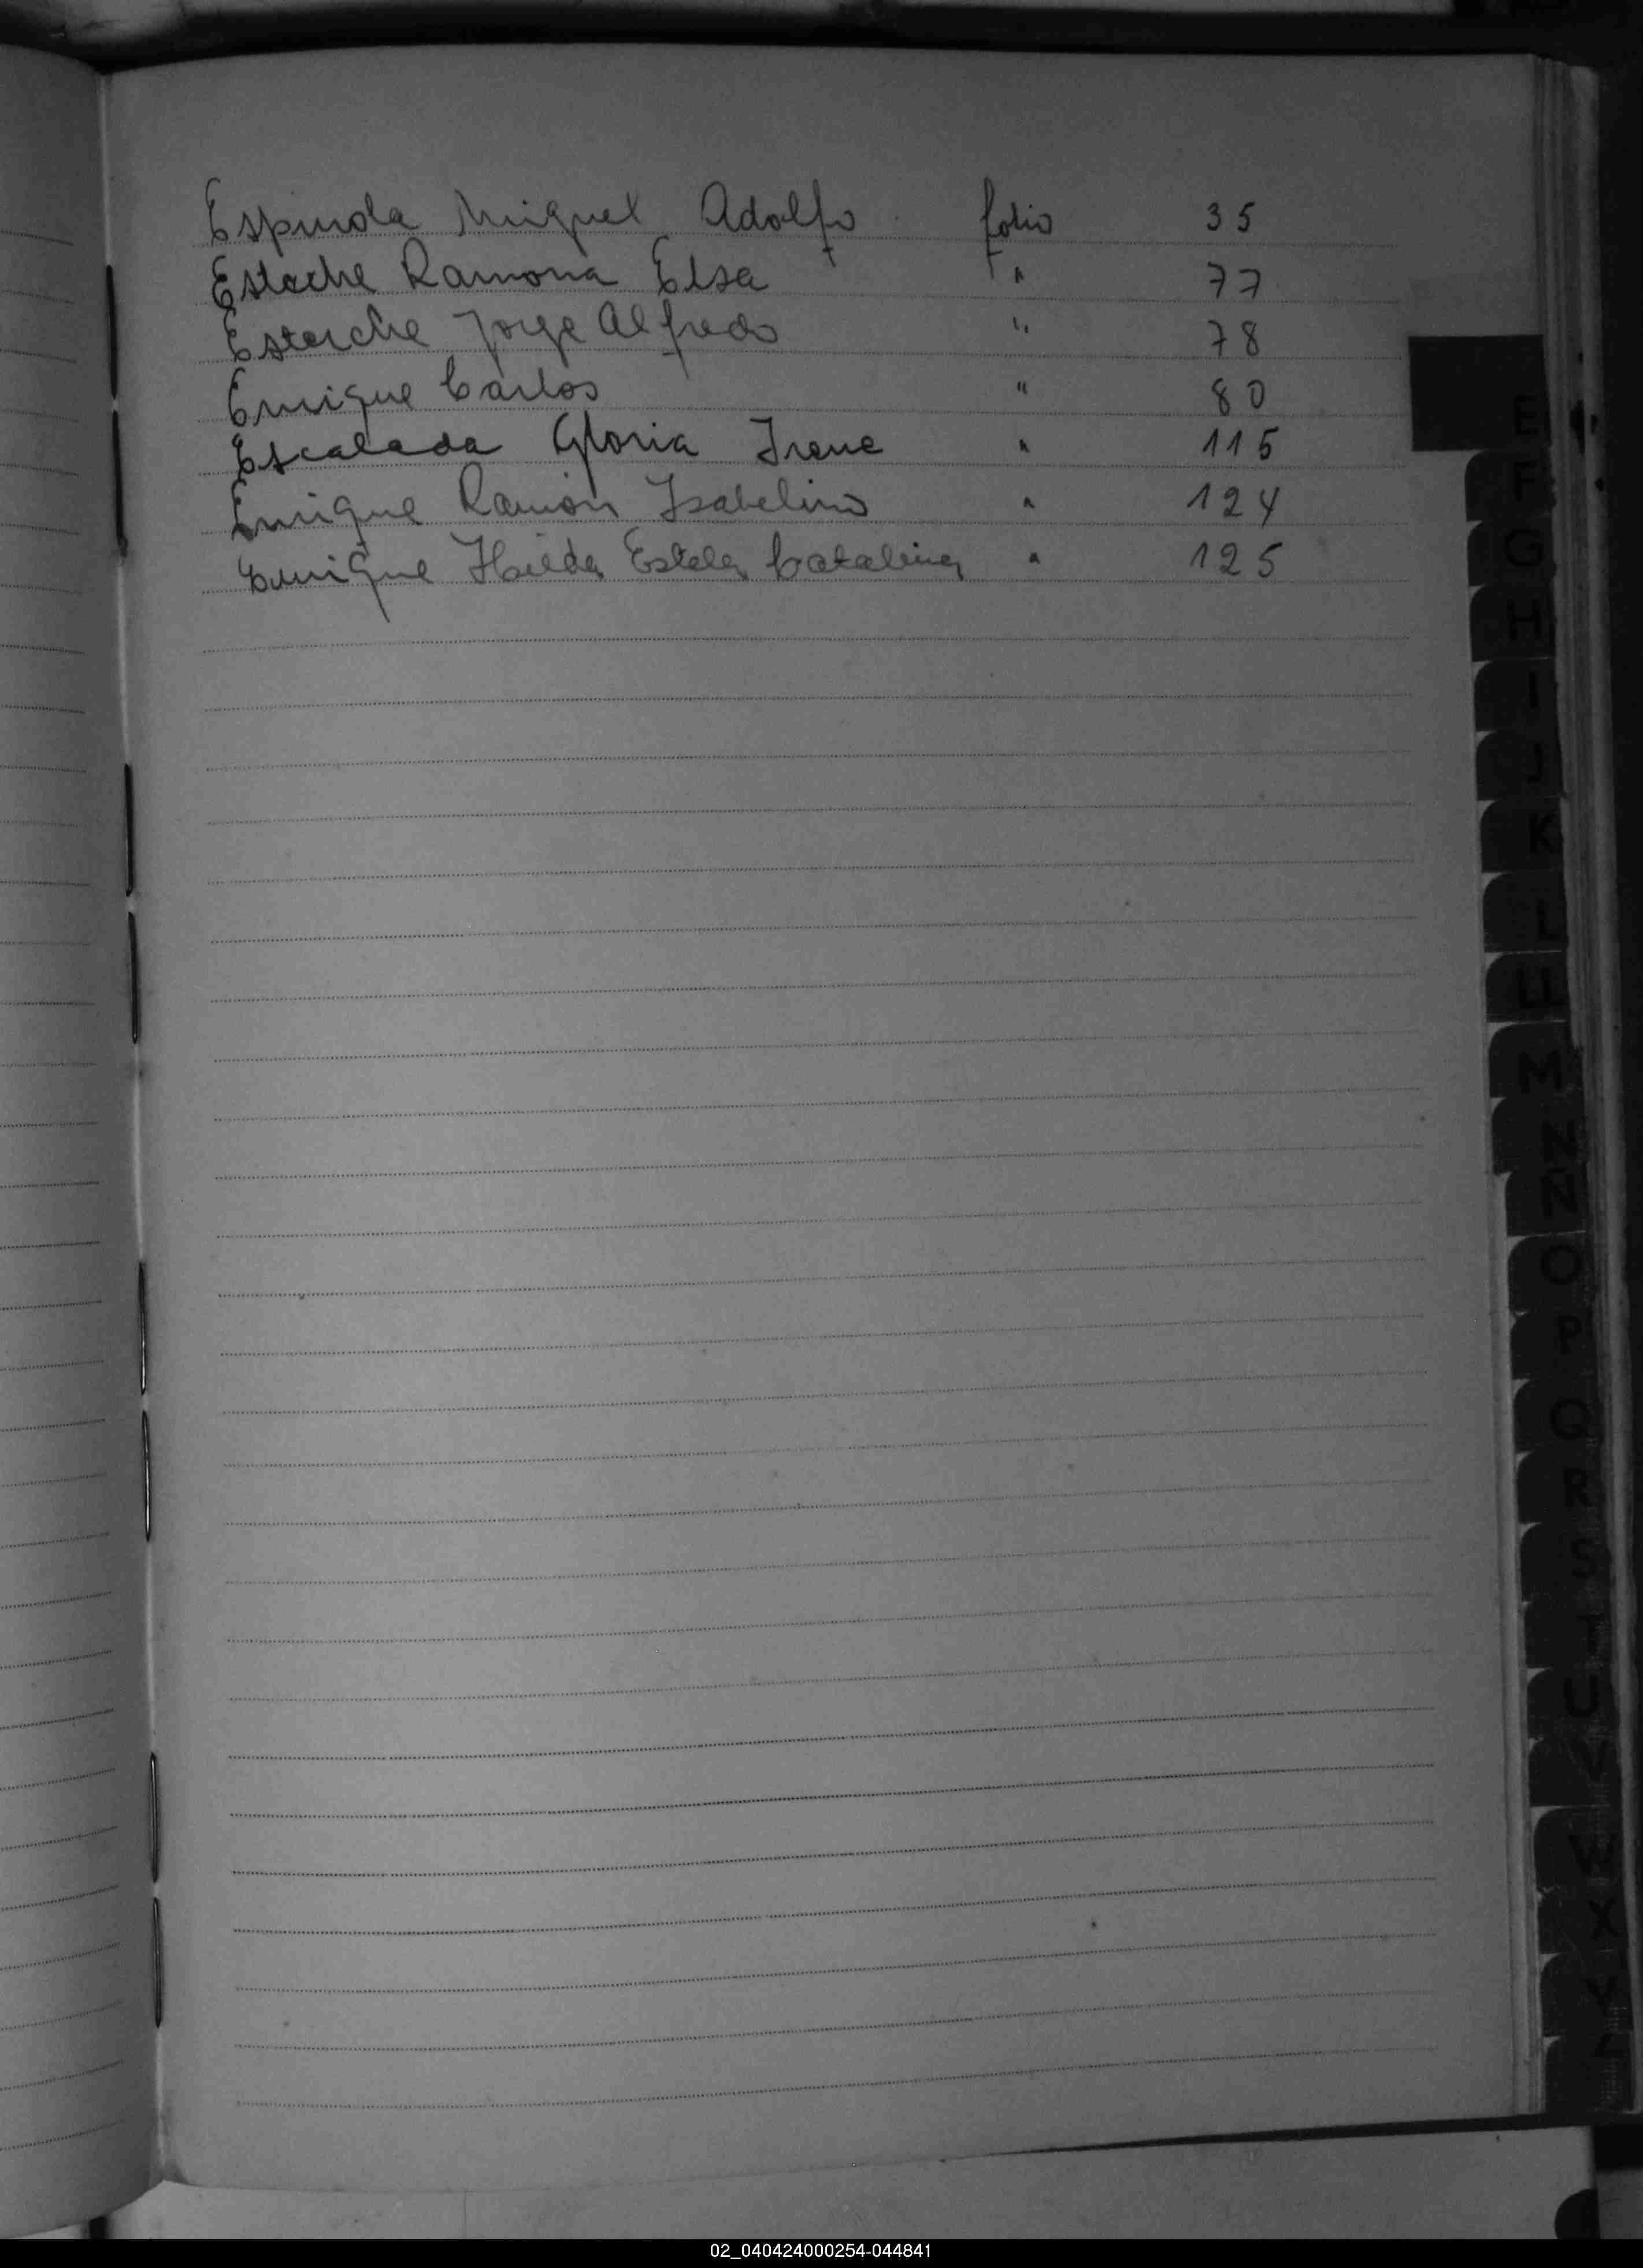 Espinola Miguel Adolfo folio 35
Esteche Ramona Elsa " 77
Esteche Jorge Alfredo " 78
Enrique Carlos " 80
Escalada Gloria Irene " 115
Enrique Ramón Isabelino " 124
Enrique Hilda Estela Catalina " 125
E
F
G
H
I
J
K
L
LL
M
N
Ñ
O
P
Q
R
S
T
U
V
W
X
Y
02_040424000254-044841